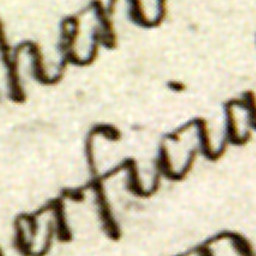 hen
erficia